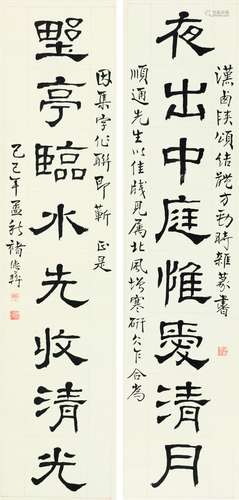 漢西陝頌結體方勁時雜篆書
夜出中庭惟愛清月
順通先生以佳牋見属北風增寒研仌乍合為
因集字作聯即蘄正是
墅亭臨水先收清光
己巳年孟秋褚德彝